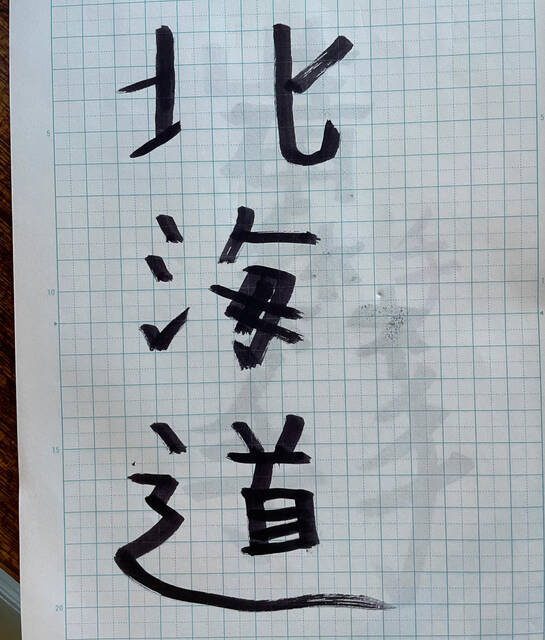 北海道
5
10
15
20